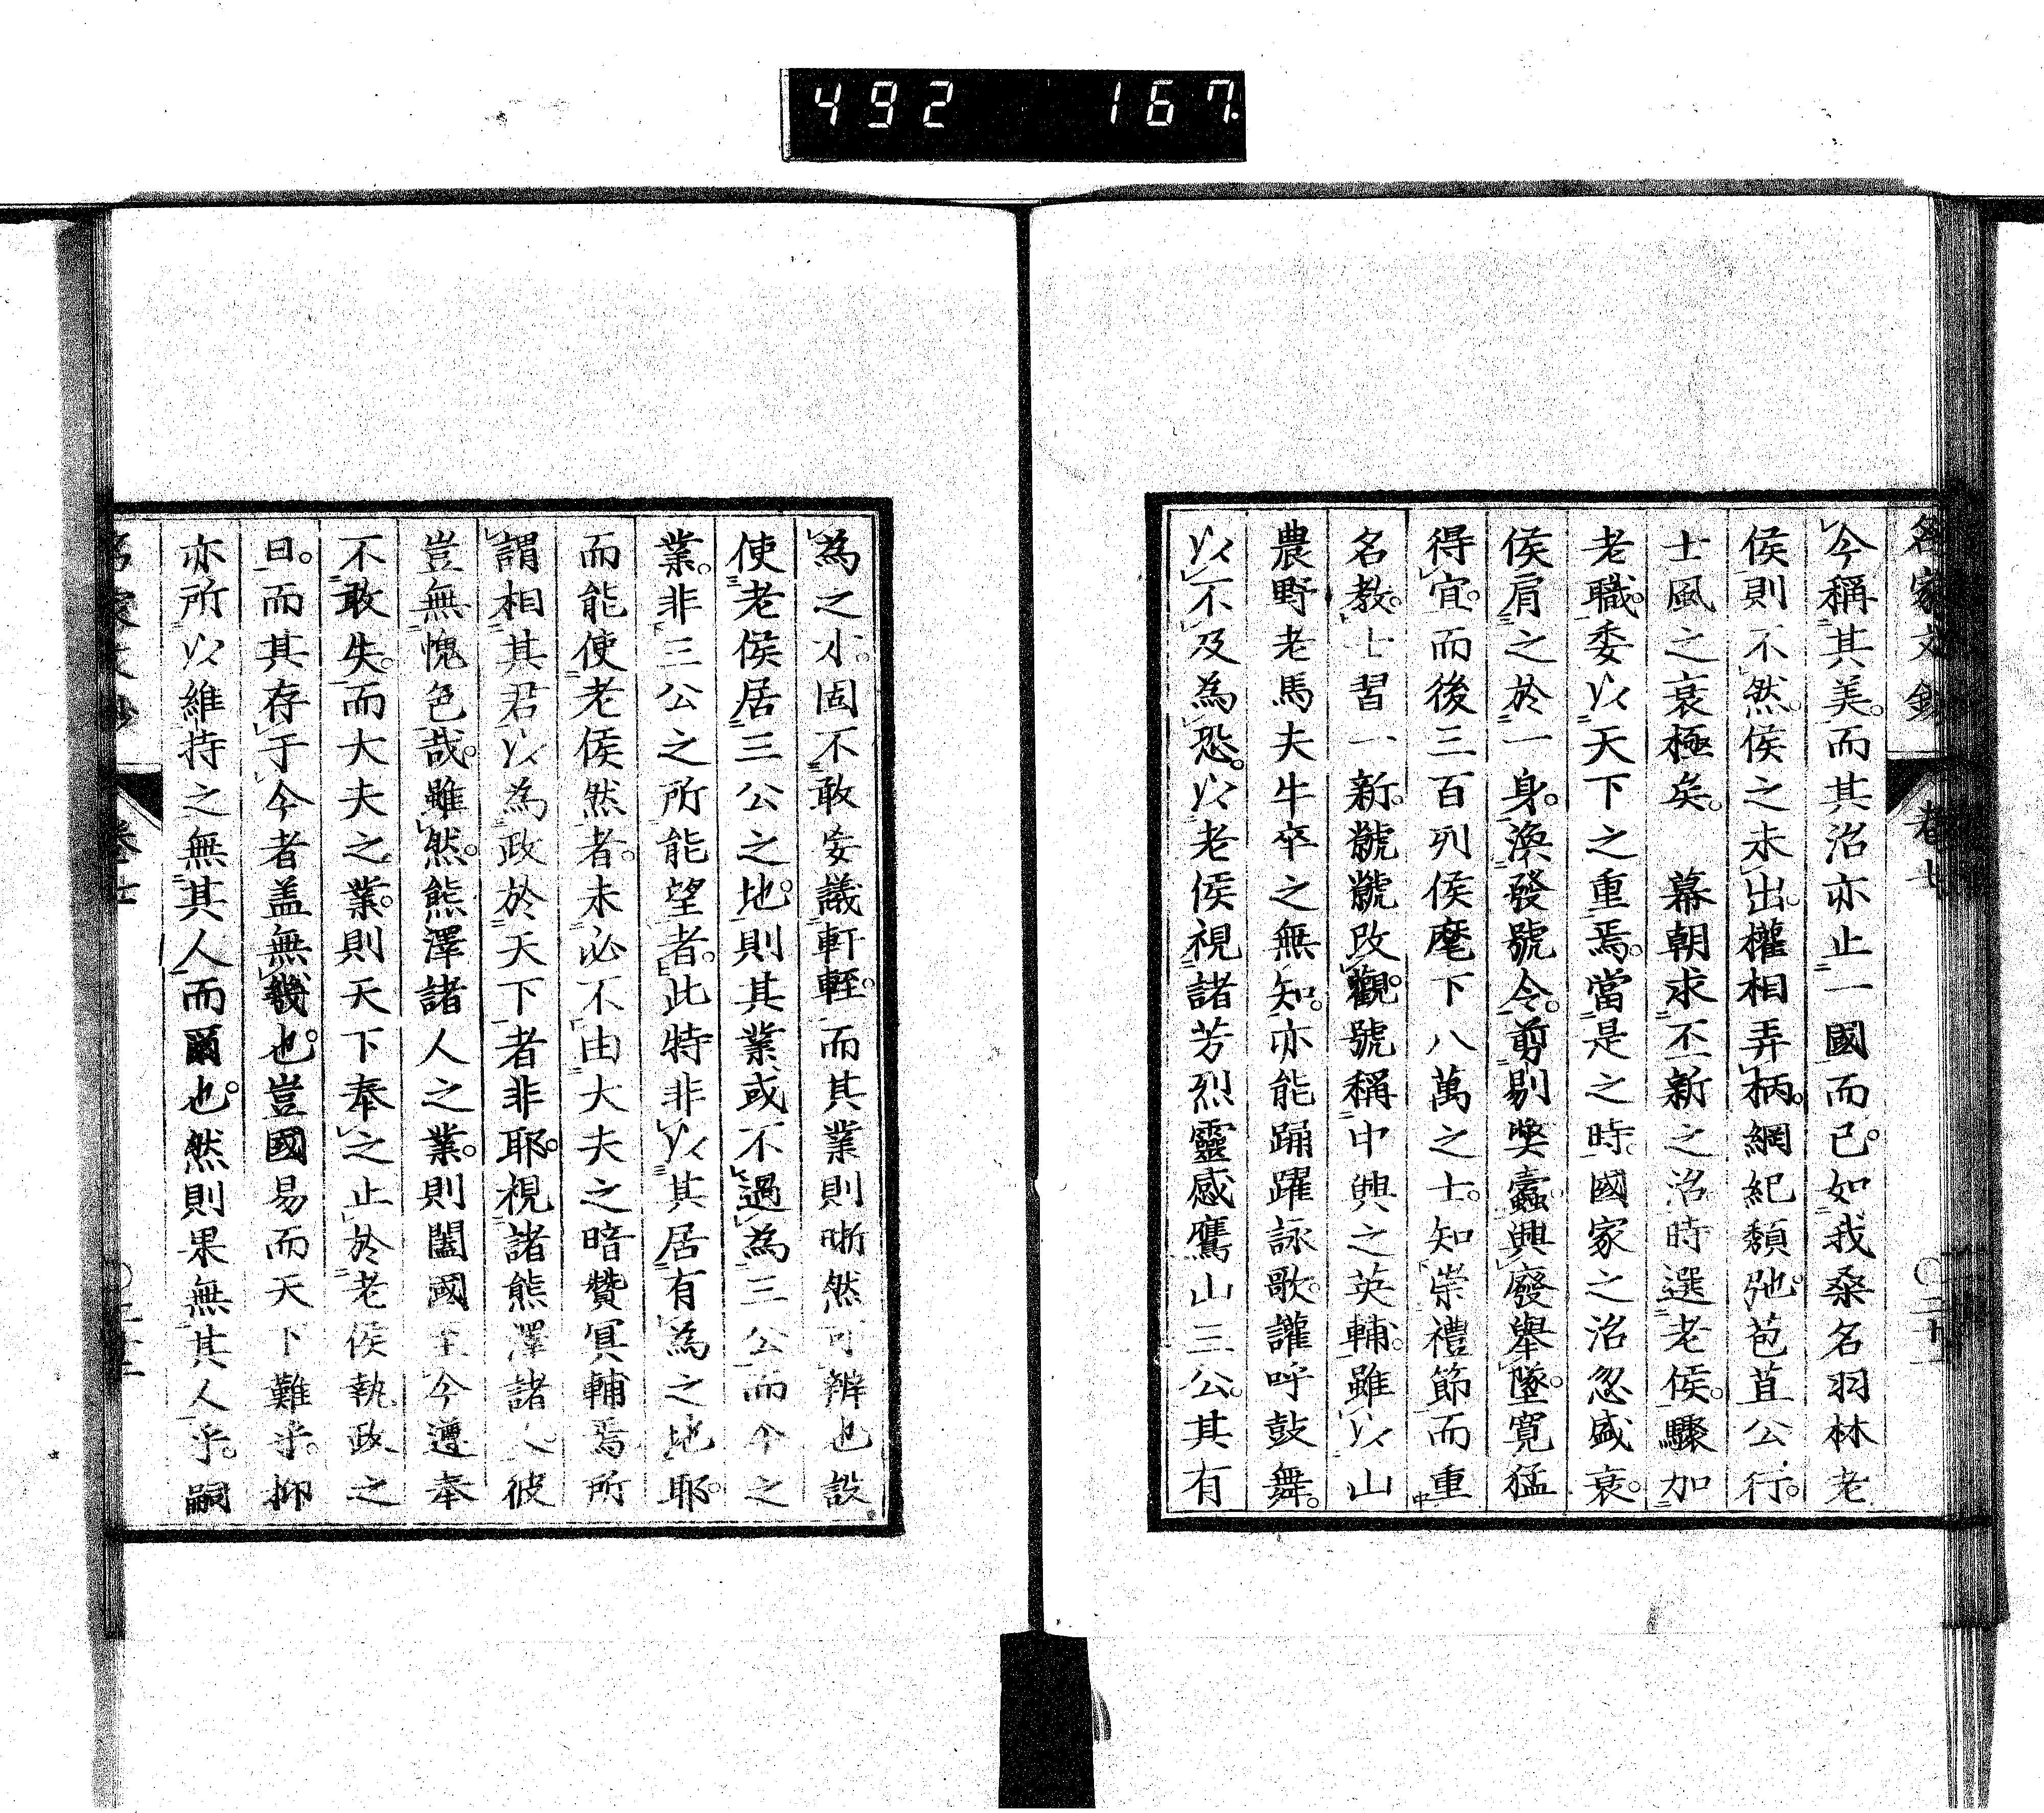 492 167
名家文鈔 卷七
今稱其美。而其治亦止一國而已。如我桑名羽林老
侯則不然。侯之未出。權相弄柄。綱紀頽弛。苞苴公行。
士風之衰極矣。 幕朝求丕新之治時選老侯。驟加
老職。委以天下之重焉。當是之時。國家之治忽盛衰。
侯肩之於一身。渙發號令。剪剔獘蠹。興廢舉墜。寬猛
得宜。而後三百列侯麾下八萬之士。知崇禮節而重
名教。士習一新。虩虩改觀。號稱中興之英輔。雖以山
農野老馬夫牛卒之無知。亦能踊躍詠歌。讙呼鼓舞。
以不及為恐。以老侯視諸芳烈靈感鷹山三公。其有
為之才。固不敢妄議軒輊。而其業則晰然可辨也設
使老侯居三公之地。則其業或不過為三公而今之
業。非三公之所能望者。此特非以其居有為之地耶。
而能使老侯然者。未必不由大夫之暗贊冥輔焉所
謂相其君以為政於天下者非耶。視諸熊澤諸人彼
豈無愧色哉。雖然。熊澤諸人之業。則闔國至今遵奉
不敢失。而大夫之業。則天下奉之止於老侯執政之
日。而其存于今者盖無幾也。豈國易而天下難乎。抑
亦所以維持之無其人而爾也。然則果無其人乎。嗣